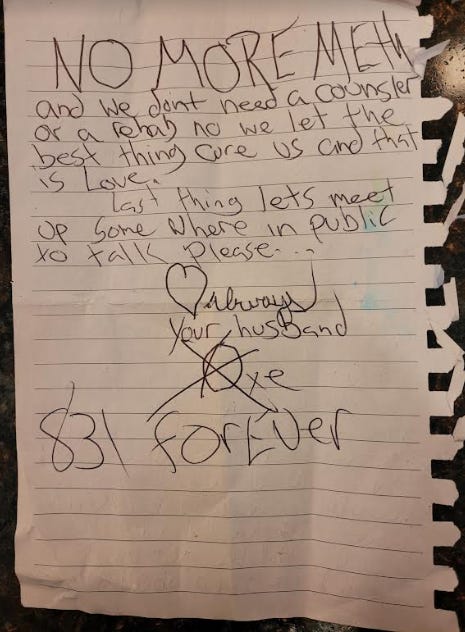 NO MORE METH
and we dont need a counsler
or a rehab no we let the
best thing cure us and that
is Love.
Last thing lets meet
up some where in public
to talk please...
Always
Your husband
xe
831 forEver